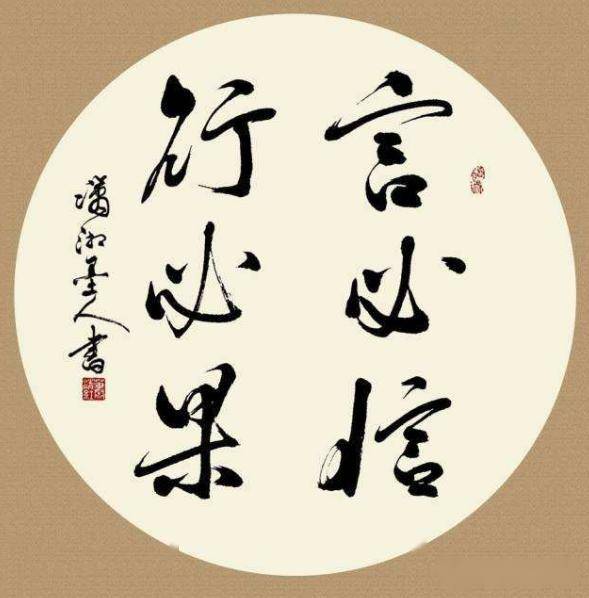 言必信
行必果
潇湘墨人书